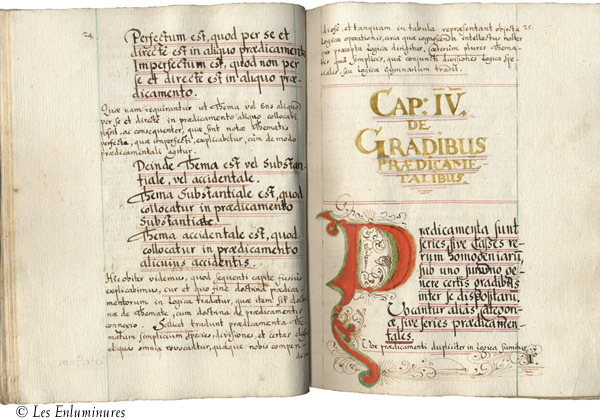 24.
Perfectum est, quod per se et
directè est in aliquo prædicamento
Imperfectum est, quod non per
se et directè est in aliquo præ-
dicamento.
Quæ nam requirantur ut Thema vel Ens aliquod
per se et directè in prædicamento aliquo collocari
possit, ac consequenter, quæ sint notæ Thematis
perfecti, quæ imperfecti, explicabitur, cùm de modo
prædicamentali agitur.
Deinde Thema est vel Substan-
tiale, vel accidentale.
Thema Substantiale est, quod
collocatur in prædicamento
Substantiæ.
Thema accidentale est, quod
collocatur in prædicamento
alicuius accidentis.
Hic obiter videmus, quod sequenti capite fusius
explicabimus, cur et quo fine doctrina prædica-
mentorum in Logica tradatur, quæ item sit doctri-
næ de Themate, cum doctrina de prædicamentis
connexio. Scilicet tradunt prædicamenta The-
matum simplicium species, divisiones, et certas ad
aliquas omnia revocantur, quæque nobis compen-
25.
diosè, et tanquam in tabula repræsentant objecta
Logicæ operationis, circa quæ cognoscenda intellectus noster
per præcepta Logica dirigitur. Cæterum plures Thema-
tis quà simplicis, quà conjuncti divisiones Logica spe-
cialis, seu Logicæ Gymnasium tradit.
CAP: IV.
DE
GRADIBUS
PRÆDICAME-
TALIBUS.
Prædicamenta sunt
series sive Classes re-
rum homogeniarū,
sub uno summo ge-
nere certis gradibus
inter se dispositarū.
Vocantur aliàs categori-
æ, sive series prædicamen-
tales.
Vox prædicamenti dupliciter in Logica sumitur
© Les Enluminures